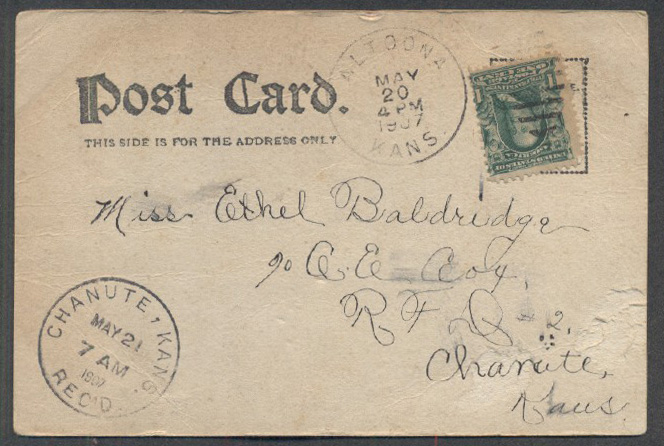 Post Card.
THIS SIDE IS FOR THE ADDRESS ONLY
ALTOONA
MAY
20
4 PM
1907
KANS.
Miss Ethel Baldridge
℅ A. E. Coy,
R F D - 2.
Chanute,
Kans
CHANUTE, KANS
MAY 21
7 AM
1907
REC'D.